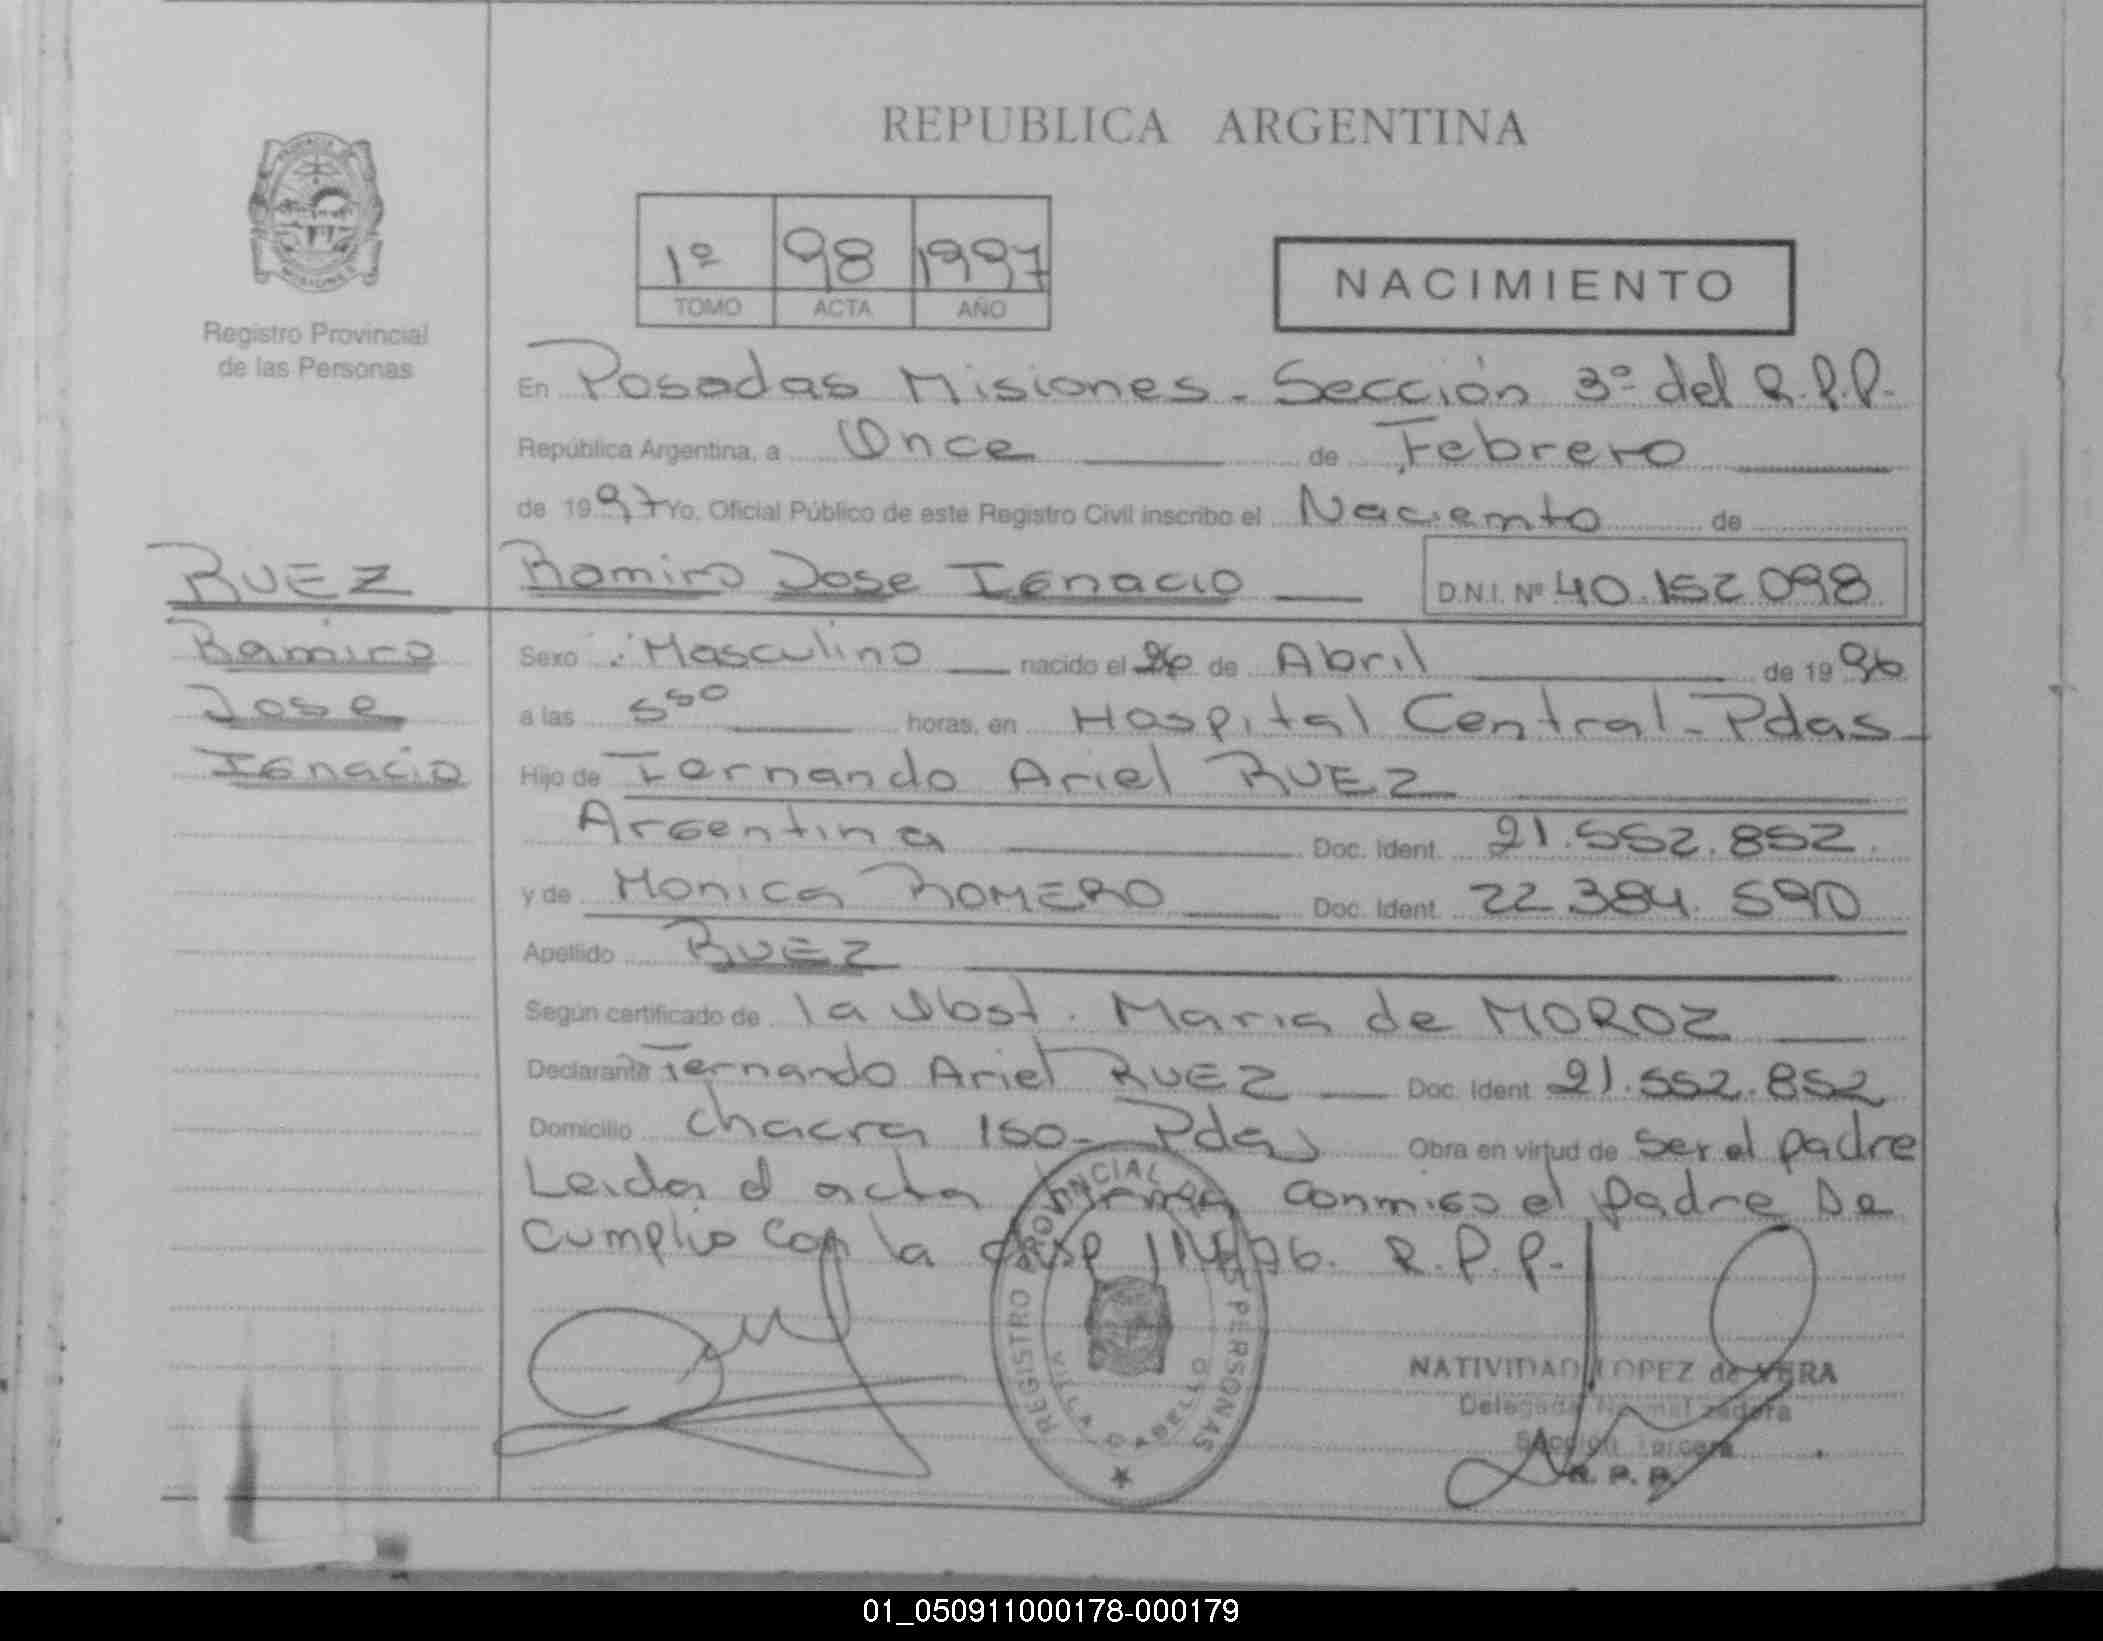 REPUBLICA ARGENTINA
1º 98 1997
TOMO ACTA AÑO
NACIMIENTO
Registro Provincial
de las Personas
En Posadas Misiones - Sección 3º del R.P.P.
República Argentina, a Once de Febrero
de 1997 Yo, Oficial Público de este Registro Civil inscribo el Naciemto de
RUEZ Ramiro Jose Ignacio D.N.I. Nº 40.152.098
Ramiro
Jose
Ignacio
Sexo: Masculino nacido el de Abril de 1996
a las 5 50 horas, en Hospital Central - Pdas
Hijo de Fernando Ariel RUEZ
Argentina Doc. Ident. 21.552.852.
y de Monica ROMERO Doc. Ident. 22.384.590
Apellido RUEZ
Según certificado de la Obst. Maria de MOROZ
Declarante Fernando Ariel RUEZ Doc. Ident. 21.552.852
Domicilio chacra 150 - Pdas Obra en virtud de ser el padre
Leida el acta firma conmigo el padre Se
cumplio con la disp R.P.P.
REGISTRO PROVINCIAL PERSONAS
VILLA CABELLO
NATIVIDAD LOPEZ de VERA
Delegada Normalizadora
Sección Tercera
R.P.P.
01_050911000178-000179